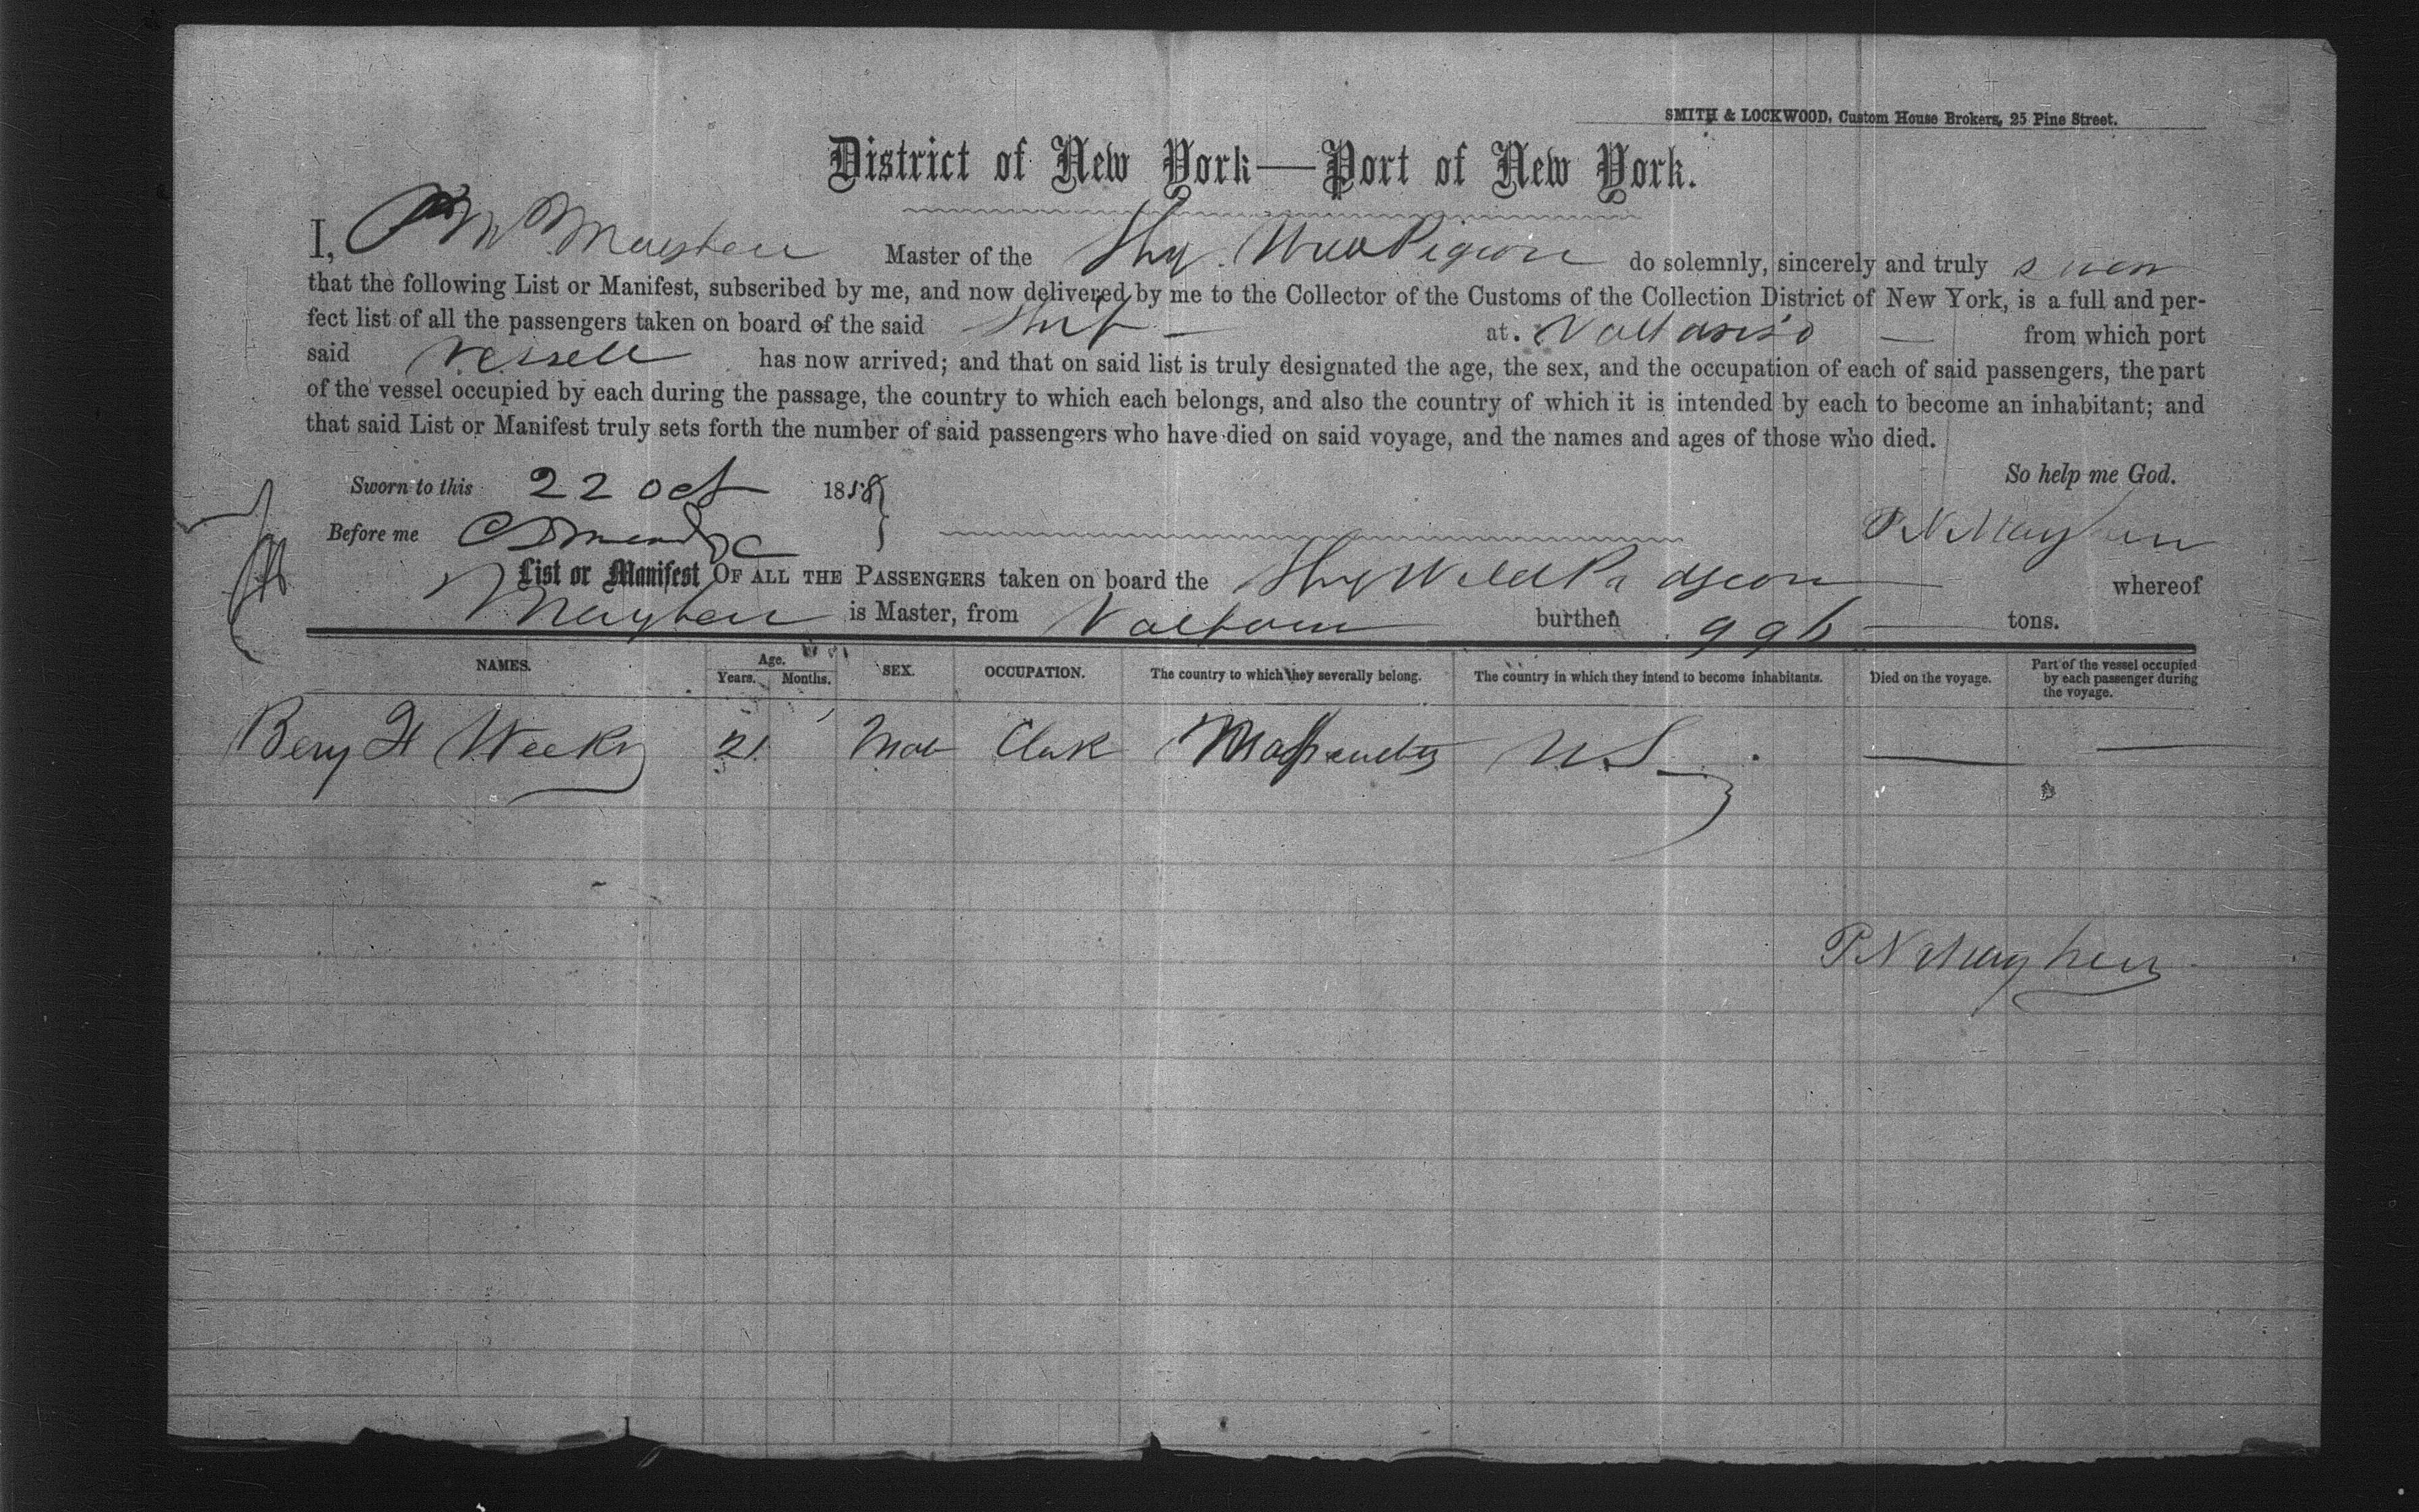 SMITH & LOCKWOOD, Custom House Brokers, 25 Pine Street.
District of New York—Port of New York.
I, P N Mayhew Master of the Ship Wild Pigeon do solemnly, sincerely and truly swear
that the following List or Manifest, subscribed by me, and now delivered by me to the Collector of the Customs of the Collection District of New York, is a full and per-
fect list of all the passengers taken on board of the said Ship — at Valparaiso — from which port
said Vessell has now arrived; and that on said list is truly designated the age, the sex, and the occupation of each of said passengers, the part
of the vessel occupied by each during the passage, the country to which each belongs, and also the country of which it is intended by each to become an inhabitant; and
that said List or Manifest truly sets forth the number of said passengers who have died on said voyage, and the names and ages of those who died.
So help me God.
Sworn to this 22 Oct 1858
Before me
P N Mayhew
List or Manifest OF ALL THE PASSENGERS taken on board the Ship Wild Pidgeon whereof
Mayhew is Master, from burthen 996 tons.
NAMES. Age. Years. Months. SEX. OCCUPATION. The country to which they severally belong. The country in which they intend to become inhabitants. Died on the voyage. Part of the vessel occupied by each passenger during the voyage.
Benj H Weeks 21 Male Clerk Massachusetts U.S. — —
P N Mayhew